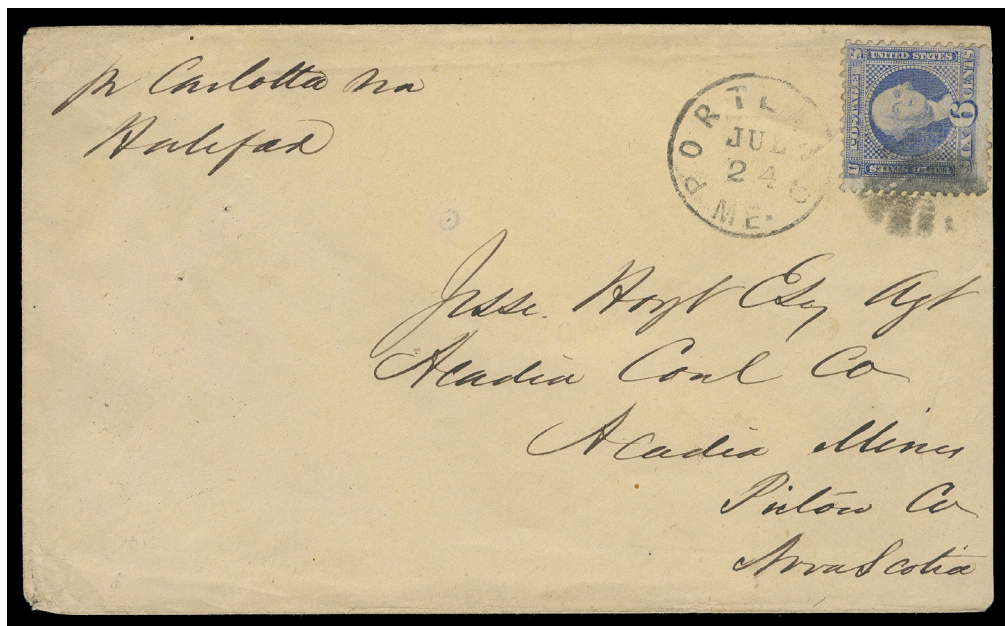 pr Carlotta via
Halifax
PORTLA
JUL
24
ME.
UNITED STATES
U S POSTAGE
6 CENTS
UNITED STATES
Jesse. Hoyt Esq Agt
Acadia Coal Co
Acadia Mines
Pictou Co
Nova Scotia